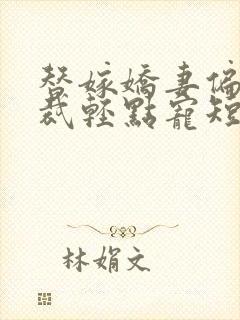 替嫁嬌妻偏
裁輕點寵短
林娟文